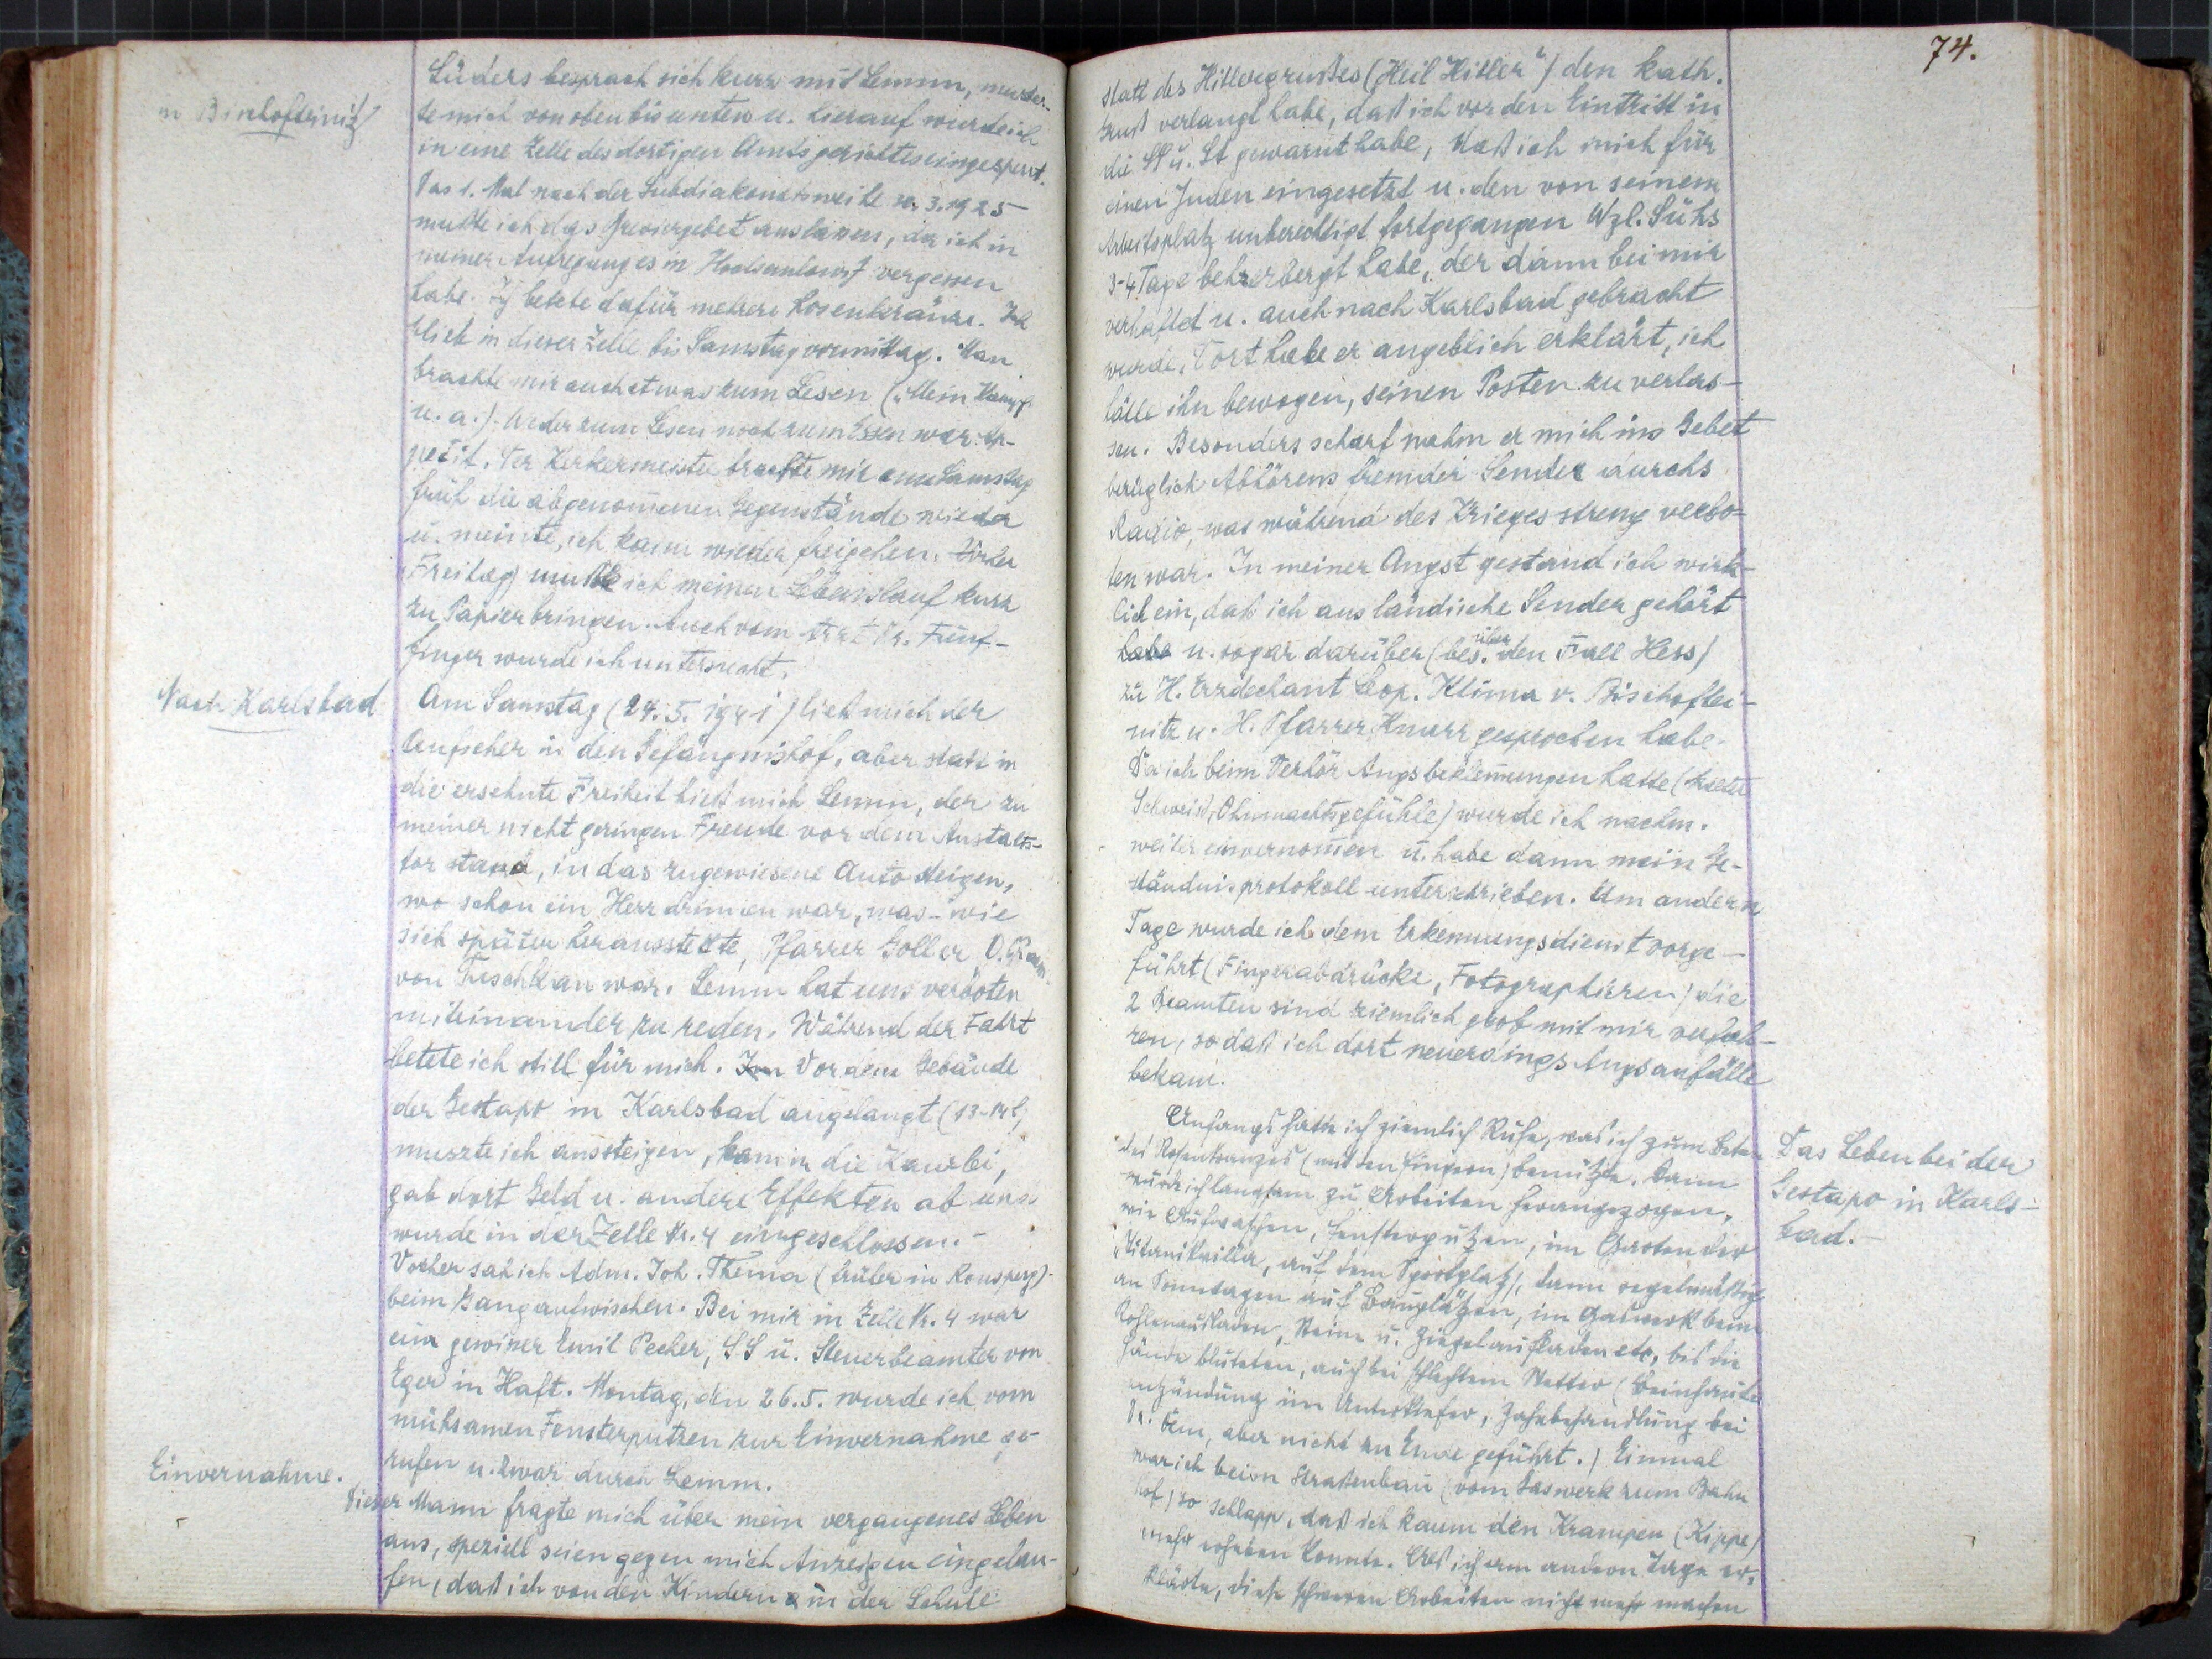 in Bischofteinitz
Lüders besprach sich kurz mit Lemm, muster-
te mich von oben bis unten u. hierauf wurde ich
in eine Zelle des dortigen Amtsgerichtes eingesperrt.
Das 1. Mal nach der Subdiakonatsweihe 3.1925
mußte ich das Breviergebet auslassen, da ich in
meiner Aufregung es in vergessen
habe. Ich betete dafür mehrere Rosenkränze. Ich
blieb in dieser Zelle bis Samstag vormittag. Man
brachte mir auch etwas zum Lesen („Mein Kampf
u. a.). Weder zum Lesen noch zum Essen war Ap-
petit. Der Kerkermeister brachte mir am Samstag
früh die abgenom̅enen Gegenstände wieder
u. meinte, ich kann wieder freigehen. Vorher
Freitag) mußte ich meinen Lebenslauf kurz
zu Papier bringen. Auch vom Arzt Dr. Fünf-
finger wurde ich untersucht.
Nach Karlsbad
Am Samstag (24. 5. 1941) ließ mich der
Aufseher in den Gefängnishof, aber statt in
die ersehnte Freiheit hieß mich Lemm, der zu
meiner nicht geringen Freude vor dem Anstalts-
tor stand, in das zugewiesene Auto steigen,
wo schon ein Herr drinnen war, was - wie
sich später herausstellte, Pfarrer Goller
von war. Lemm hat uns verboten
miteinander zu reden. Während der Fahrt
betete ich still für mich. Im Vor dem Gebäude
der Gestapo in Karlsbad angelangt (13-14h)
muszte ich aussteigen, kam in die Kanzlei,
gab dort Geld u. andere Effekten ab und
wurde in der Zelle Nr. 4 eingeschlossen. -
Vorher sah ich Adm. Joh. Thema (früher in Ronsperg)
beim Gangaufwischen. Bei mir in Zelle Nr. 4 war
ein gewisser Emil Pecher, SS u. Steuerbeamter von
Eger in Haft. Montag, den 26. 5. wurde ich vom
mühsamen Fensterputzen zur Einvernahme ge-
rufen u. zwar durch Lemm.
Einvernahme.
Dieser Mann fragte mich über mein vergangenes Leben
aus, speziell seien gegen mich Anzeigen eingelau-
fen, daß ich von den Kindern in der Schule
74.
statt des Hitlergrußes („Heil Hitler“) den kath.
Gruß verlangt habe, daß ich vor den Eintritt in
die SS u. SA gewarnt habe, daß ich mich für
einen Juden eingesetzt u. den von seinem
Arbeitsplatz unberechtigt fortgegangen Wzl. Sühs
3-4 Tage beherbergt habe, der dann bei mir
verhaftet u. auch nach Karlsbad gebracht
wurde. Dort habe er angeblich erklärt, ich
hätte ihn bewogen, seinen Posten zu verlas-
sen. Besonders scharf nahm er mich ins Gebet
bezüglich Abhörens fremder Sender durchs
Radio, was während des Krieges streng verbo-
ten war. In meiner Angst gestand ich wirk-
lich ein, daß ich ausländische Sender gehört
habe u. sogar darüber (bes. über den Fall Hess)
zu H. Erzdechant Leop. Klima v. Bischoftei-
nitz u. H. Pfarrer Knurr gesprochen habe.
Da ich beim Verhör Angsbeklem̅ungen hatte (kalter
Schweiß, Ohnmachtsgefühle) wurde ich nachm.
weiter einvernom̅en u. habe dann mein Ge-
ständnisprotokoll unterschrieben. Am andern
Tage wurde ich dem Erkennungsdienst vorge-
führt (Fingerabdrücke, Fotographieren) die
2 Beamten sind ziemlich grob mit mir verfah-
ren, sodaß ich dort neuerdings Angsanfälle
bekam.
Das Leben bei der
Gestapo in Karls-
bad. -
Anfangs hatte ich ziemlich Ruhe, was ich zum Beten
des Rosenkranzes (mit den Fingern) benützte. Dann
wurde ich langsam zu Arbeiten herangezogen,
wie Aufwaschen, Fensterputzen, im Garten der
auf dem Sportplatz), dann regelmäßig
an Sonntagen auf Bauplätzen, im Gaswerk beim
Kohlenausladen, Steine u. Ziegel aufladen etc, bis die
Hände bluteten, auch bei schlechtem Wetter (Beinhaut-
entzündung im Unterkiefer, Zahnbehandlung bei
Dr. aber nicht zu Ende geführt.) Einmal
war ich beim Straßenbau (vom Gaswerk zum Bahn
hof) so schlapp, daß ich kaum den Krampen (Kippe)
mehr erheben konnte. Als ich am andern Tage er-
klärte, diese schweren Arbeiten nicht mehr machen